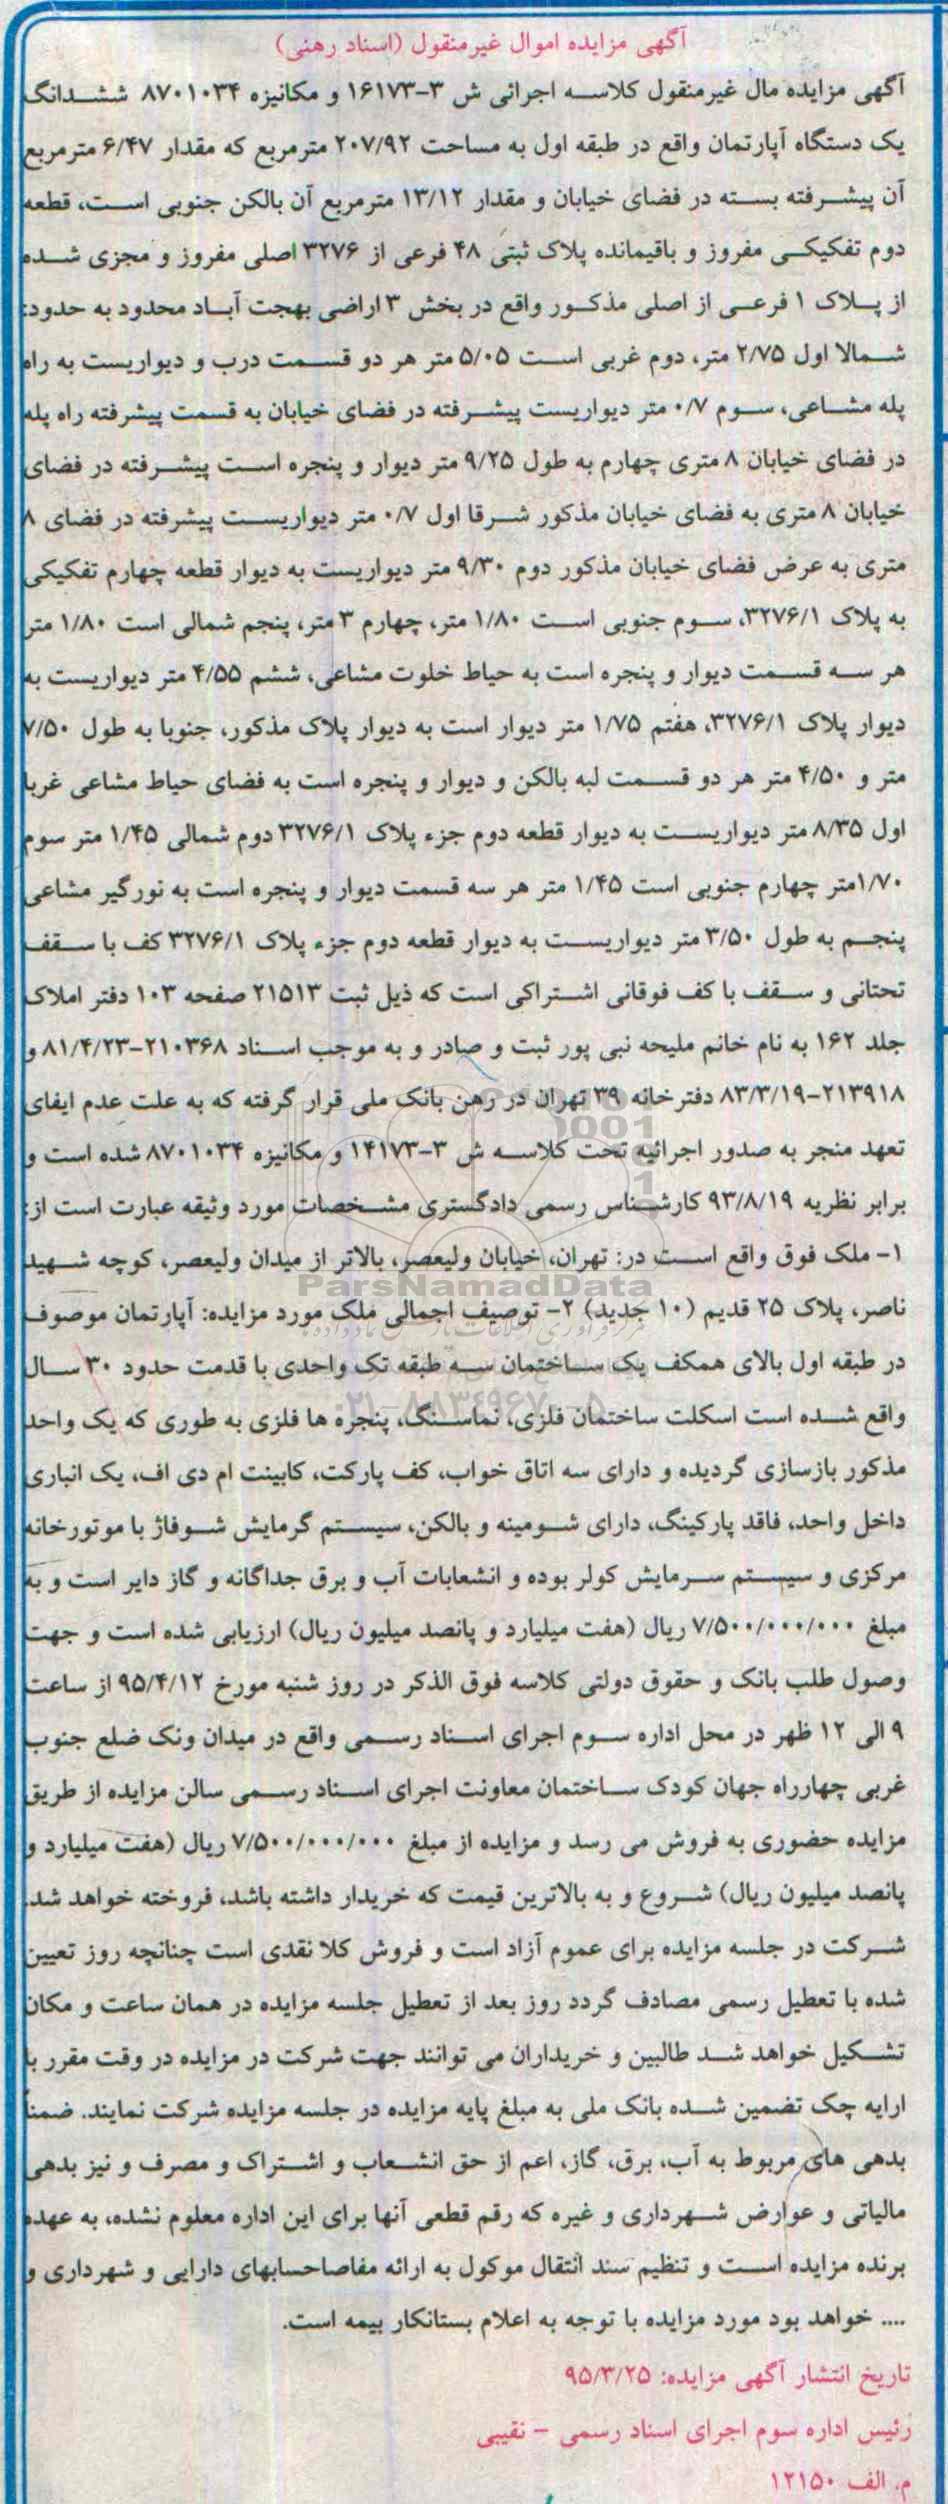 آگهی مزایده اموال غیرمنقول (اسناد رهنی)
آگهی مزایده مال غیرمنقول کلاسه اجرائی ش ۳-۱۶۱۷۳ و مکانیزه ۸۷۰۱۰۳۴ ششدانگ
یک دستگاه آپارتمان واقع در طبقه اول به مساحت ۲۰۷/۹۲ مترمربع که مقدار ۶/۴۷ مترمربع
آن پیشرفته بسته در فضای خیابان و مقدار ۱۳/۱۲ مترمربع آن بالکن جنوبی است، قطعه
دوم تفکیکی مفروز و باقیمانده پلاک ثبتی ۴۸ فرعی از ۳۲۷۶ اصلی مفروز و مجزی شده
از پلاک ۱ فرعی از اصلی مذکور واقع در بخش ۳ اراضی بهجت آباد محدود به حدود:
شمالا اول ۲/۷۵ متر، دوم غربی است ۵/۰۵ متر هر دو قسمت درب و دیواریست به راه
پله مشاعی، سوم ۰/۷ متر دیواریست پیشرفته در فضای خیابان به قسمت پیشرفته راه پله
در فضای خیابان ۸ متری چهارم به طول ۹/۲۵ متر دیوار و پنجره است پیشرفته در فضای
خیابان ۸ متری به فضای خیابان مذکور شرقا اول ۰/۷ متر دیواریست پیشرفته در فضای ۸
متری به عرض فضای خیابان مذکور دوم ۹/۳۰ متر دیواریست به دیوار قطعه چهارم تفکیکی
به پلاک ۳۲۷۶/۱، سوم جنوبی است ۱/۸۰ متر، چهارم ۳ متر، پنجم شمالی است ۱/۸۰ متر
هر سه قسمت دیوار و پنجره است به حیاط خلوت مشاعی، ششم ۴/۵۵ متر دیواریست به
دیوار پلاک ۳۲۷۶/۱، هفتم ۱/۷۵ متر دیوار است به دیوار پلاک مذکور، جنوبا به طول ۷/۵۰
متر و ۴/۵۰ متر هر دو قسمت لبه بالکن و دیوار و پنجره است به فضای حیاط مشاعی غربا
اول ۸/۳۵ متر دیواریست به دیوار قطعه دوم جزء پلاک ۳۲۷۶/۱ دوم شمالی ۱/۴۵ متر سوم
۱/۷۰متر چهارم جنوبی است ۱/۴۵ متر هر سه قسمت دیوار و پنجره است به نورگیر مشاعی
پنجم به طول ۳/۵۰ متر دیواریست به دیوار قطعه دوم جزء پلاک ۳۲۷۶/۱ کف با سقف
تحتانی و سقف با کف فوقانی اشتراکی است که ذیل ثبت ۲۱۵۱۳ صفحه ۱۰۳ دفتر املاک
جلد ۱۶۲ به نام خانم ملیحه نبی پور ثبت و صادر و به موجب اسناد ۲۱۰۳۶۸-۸۱/۴/۲۳ و
۲۱۳۹۱۸-۸۳/۳/۱۹ دفترخانه ۳۹ تهران در رهن بانک ملی قرار گرفته که به علت عدم ایفای
تعهد منجر به صدور اجرائیه تحت کلاسه ش ۳-۱۴۱۷۳ و مکانیزه ۸۷۰۱۰۳۴ شده است و
برابر نظریه ۹۳/۸/۱۹ کارشناس رسمی دادگستری مشخصات مورد وثیقه عبارت است از:
۱- ملک فوق واقع است در: تهران، خیابان ولیعصر، بالاتر از میدان ولیعصر، کوچه شهید
ParsNamadData
ناصر، پلاک ۲۵ قدیم (۱۰ جدید) ۲- توصیف اجمالی ملک مورد مزایده: آپارتمان موصوف
در طبقه اول بالای همکف یک ساختمان سه طبقه تک واحدی با قدمت حدود ۳۰ سال
واقع شده است اسکلت ساختمان فلزی، نماسنگ، پنجره ها فلزی به طوری که یک واحد
مذکور بازسازی گردیده و دارای سه اتاق خواب، کف پارکت، کابینت ام دی اف، یک انباری
داخل واحد، فاقد پارکینگ، دارای شومینه و بالکن، سیستم گرمایش شوفاژ با موتورخانه
مرکزی و سیستم سرمایش کولر بوده و انشعابات آب و برق جداگانه و گاز دایر است و به
مبلغ ۷/۵۰۰/۰۰۰/۰۰۰ ریال (هفت میلیارد و پانصد میلیون ریال) ارزیابی شده است و جهت
وصول طلب بانک و حقوق دولتی کلاسه فوق الذکر در روز شنبه مورخ ۹۵/۴/۱۲ از ساعت
۹ الی ۱۲ ظهر در محل اداره سوم اجرای اسناد رسمی واقع در میدان ونک ضلع جنوب
غربی چهارراه جهان کودک ساختمان معاونت اجرای اسناد رسمی سالن مزایده از طریق
مزایده حضوری به فروش می رسد و مزایده از مبلغ ۷/۵۰۰/۰۰۰/۰۰۰ ریال (هفت میلیارد و
پانصد میلیون ریال) شروع و به بالاترین قیمت که خریدار داشته باشد، فروخته خواهد شد.
شرکت در جلسه مزایده برای عموم آزاد است و فروش کلا نقدی است چنانچه روز تعیین
شده با تعطیل رسمی مصادف گردد روز بعد از تعطیل جلسه مزایده در همان ساعت و مکان
تشکیل خواهد شد طالبین و خریداران می توانند جهت شرکت در مزایده در وقت مقرر با
ارایه چک تضمین شده بانک ملی به مبلغ پایه مزایده در جلسه مزایده شرکت نمایند. ضمناً
بدهی های مربوط به آب، برق، گاز، اعم از حق انشعاب و اشتراک و مصرف و نیز بدهی
مالیاتی و عوارض شهرداری و غیره که رقم قطعی آنها برای این اداره معلوم نشده، به عهده
برنده مزایده است و تنظیم سند انتقال موکول به ارائه مفاصاحسابهای دارایی و شهرداری و
.... خواهد بود مورد مزایده با توجه به اعلام بستانکار بیمه است.
تاریخ انتشار آگهی مزایده: ۹۵/۳/۲۵
رئیس اداره سوم اجرای اسناد رسمی - نقیبی
م. الف ۱۲۱۵۰